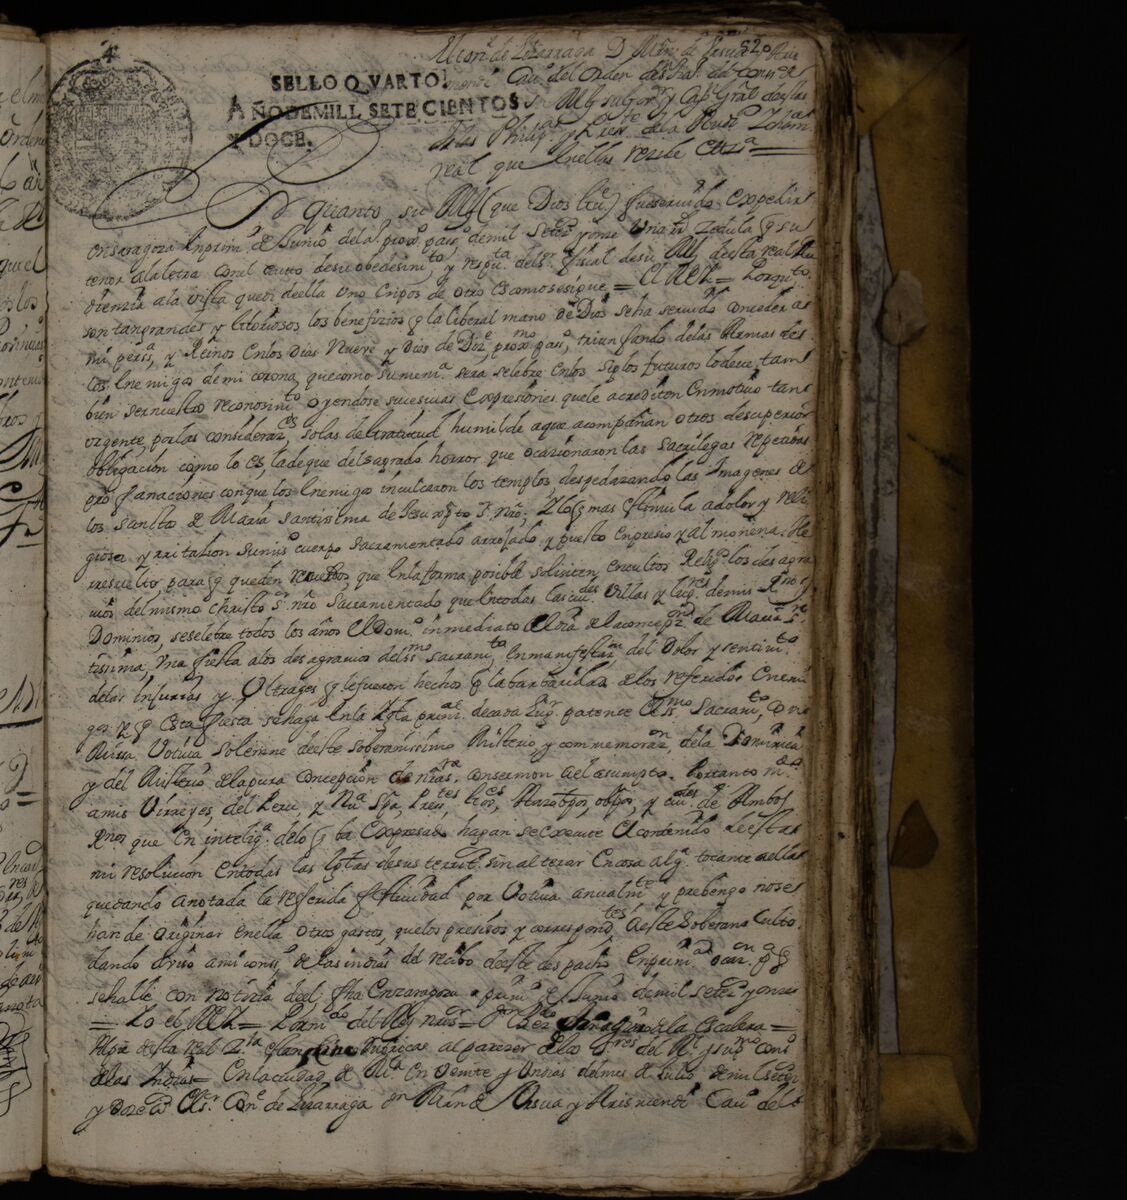 520
El Conde de Lizarraga D Mrn de Vrsua y Aris
mendi Cauo del orden de Santo del Consexo de
SELLO QVARTO
su Mgd su Gor y Capn Gral de estas
AÑO DE MILL SETECIENTOS
Yslas Philipas y Presste de la Audo
Y DOCE.
real que en ellas reside Etza
Por quanto su Mgd (que Dios gue) fue seruido expedir
en Saragoza en primo de Junio del año proxo passo de mil setezs y onze Vna Rl Zedula q su
tenor a la letra con el teuto de su obedesimto, y respta del sr fiscal de su Mgd de esta real Au
diencia a la vista que di de ella Vno en pos de otro es como se sigue = El REY = Por quto
son tan grandes y Gloriosos los benefizios q la liberal mano de Dios se ha seruido conceder a
mi perssa, y Reinos en los Dias Nueve y Dies de Dize proxmo passo, triunfando de las Armas de
los Enemigos de mi corona, que como su memia sera selebre en los siglos futuros lo deue tam
bien ser nuestro reconosimto oyendose sucesiuas expresiones que le acrediten en motiuo tan
vrgente, por las considerazes solas de Gratitud humilde a que acompañan otros de superior
obligacion como lo es, la de que del sagrado horror que ocasionaron las sacrilegas repetidas
profanaciones con que los Enemigos inculcaron los templos despedazando las Imagenes de
los sanctos de Maria Santissima de Jesuxpto sr nro, Y lo q mas estimula a dolor y reli
giosa yrritasion su mismo cuerpo sacramentado arrojado, y puesto en presio y al moneda. He
rresuelto, para q queden resueltos, que en la forma posible soliciten en cultos Religos los desagra
uios del mismo Christo sr nro Sacramentado que en todas las ciudes Villas y lugres de mis Rnos y
Dominios, se selebre todos los años el Domo inmediato al dia de la concepon de Maria sn
tissima, Vna fiesta a los desagrauios del ssmo sacramto, en manifestasn del Dolor y sentimto
de las injurias y Vltrages q le fueron hechos q la barbaridad de los referidos Enemi
gos Y q esta fiesta se haga en la Yglla prinal de cada lugr. patente el ssmo Sacramto, con vna
Missa Votiua solemne de este soberanissimo Misterio, y commemorazon de la Dominica
y del Misterio de la pura Concepcion de nra sra, con sermon a el asumpto. Por tanto mdo
a mis Virreyes, del Peru, y Nua Spa, Prestes, Gores, Arzobpos, obpos, y ciudes de Ambos
Rnos que en intelig.a de lo q ba expresado hagan se execute el contenido de esta
mi resolucion en todas las Yglas de sus territs sin alterar en cosa alga tocante a ellas
quedando anotada la referida festiuidad por Votiua anualmte y prebengo no se
han de originar en ella otros gastos, que los presisos y correspondtes a este soberano culto
dando aviso a mi conso de las indias del reciuo de este despacho en primra ocan pa q
se halle con notizia de el, fha en zaragoza a primo de Junio de mil setezs y onze
= Yo el REY = Por mdo del Rey nro sr = Dn de la Escalera =
Al pie de esta real Zla estan rubricas al parezer de los sres del Rl y supmo conso
de las Indias = En la ciudad de Mla en veinte y un dias del mes de Julio de mil setezs
y doze as El sr Cone de Lizarraga Dn Martn de Vrsua y Arismendi Cauo del o